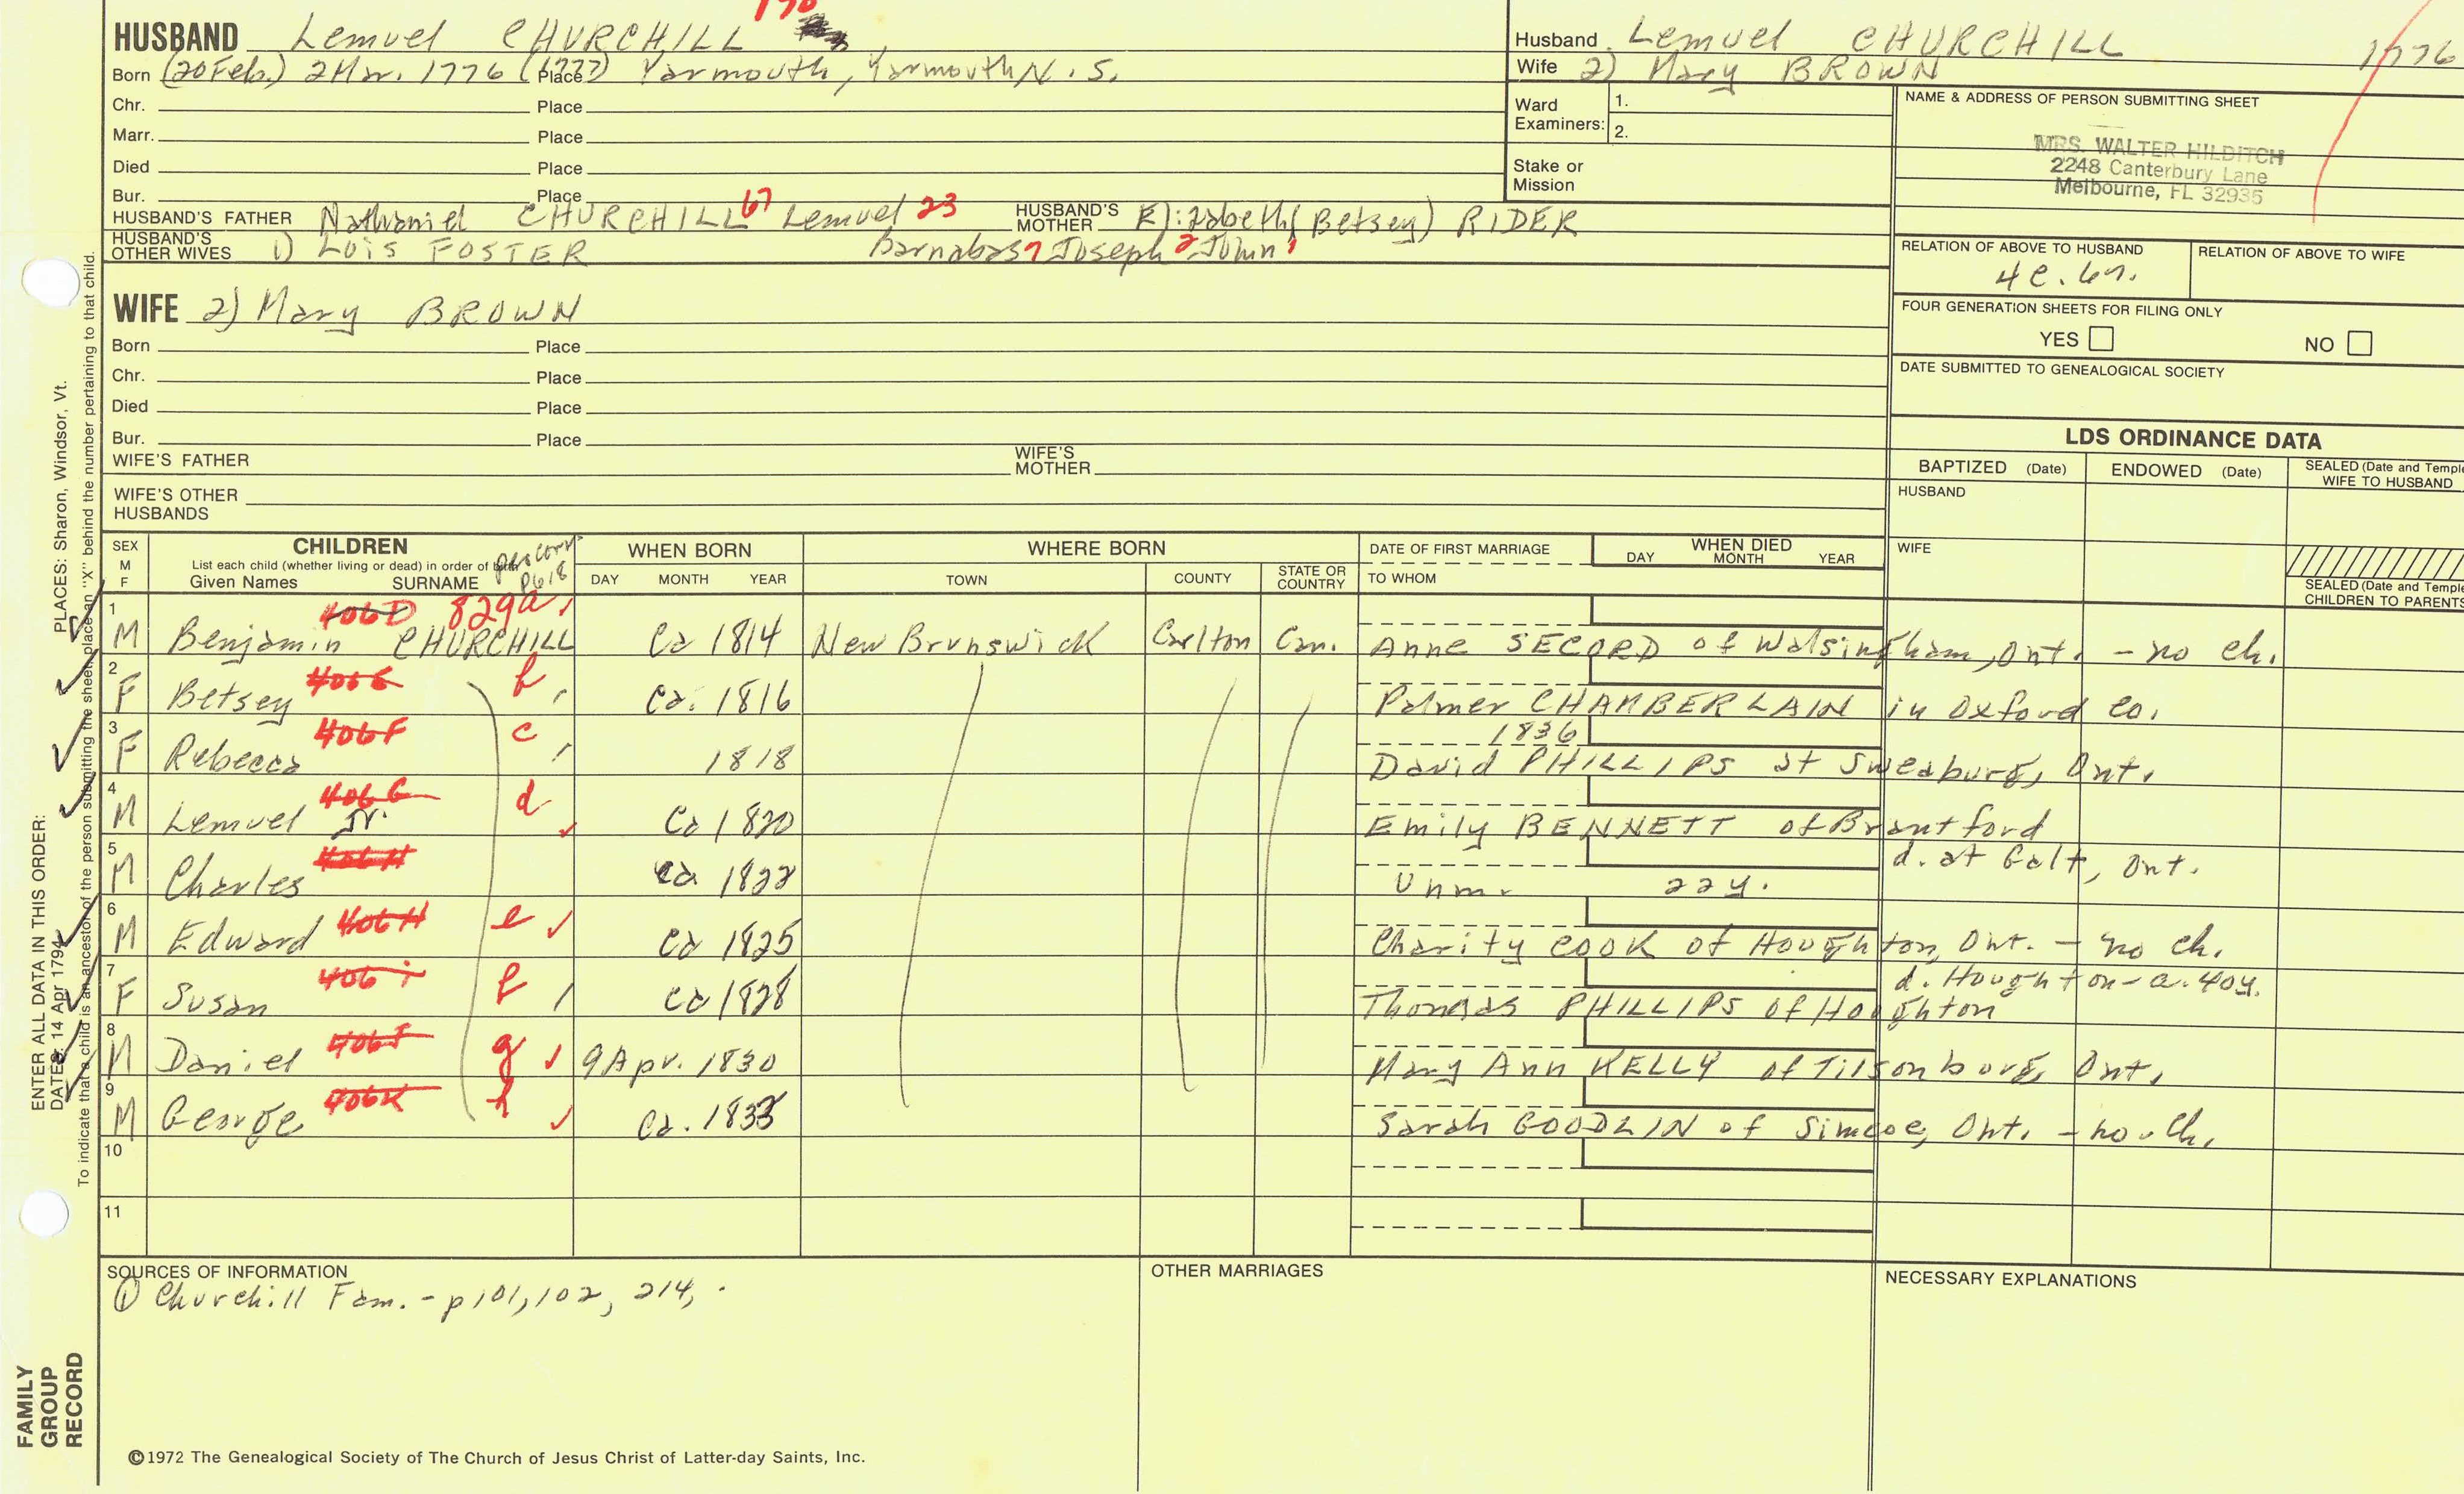 HUSBAND Lemuel CHURCHILL
Born (20 Feb.) 2 Mar. 1776 (1777) Place Yarmouth, Yarmouth N. S.
Chr. Place
Marr. Place
Died Place
Bur. Place
HUSBAND'S FATHER Nathaniel CHURCHILL 67 Lemuel 23 HUSBAND'S MOTHER Elizabeth (Betsey) RIDER
HUSBAND'S OTHER WIVES 1) Lois FOSTER Barnabas 7 Joseph 2 John 1
WIFE 2) Mary BROWN
Born Place
Chr. Place
Died Place
Bur. Place
WIFE'S FATHER WIFE'S MOTHER
WIFE'S OTHER HUSBANDS
Husband Lemuel CHURCHILL 1776
Wife 2) Mary BROWN
Ward Examiners: 1.
2.
Stake or Mission
NAME & ADDRESS OF PERSON SUBMITTING SHEET
MRS. WALTER HILDITCH
2248 Canterbury Lane
Melbourne, FL 32935
RELATION OF ABOVE TO HUSBAND RELATION OF ABOVE TO WIFE
FOUR GENERATION SHEETS FOR FILING ONLY
YES NO
DATE SUBMITTED TO GENEALOGICAL SOCIETY
LDS ORDINANCE DATA
BAPTIZED (Date) ENDOWED (Date) SEALED (Date and Temple
WIFE TO HUSBAND
HUSBAND
WIFE
SEALED (Date and Temple
CHILDREN TO PARENTS
SEX M F CHILDREN WHEN BORN WHERE BORN DATE OF FIRST MARRIAGE WHEN DIED
List each child (whether living or dead) in order of birth DAY MONTH YEAR
Given Names SURNAME p618 DAY MONTH YEAR TOWN COUNTY STATE OR COUNTRY TO WHOM
406D 829a
1 M Benjamin CHURCHILL Ca 1814 New Brunswick Carlton Can. Anne SECORD of Walsingham, Ont. - no ch.
406E b
2 F Betsey Ca. 1816 Palmer CHAMBERLAIN in Oxford Co.
406F c 1836
3 F Rebecca 1818 David PHILLIPS at Sweaburg, Ont.
406G d
4 M Lemuel Jr. Ca 1820 Emily BENNETT of Brantford
406H d. at Galt, Ont.
5 M Charles Ca 1822 Unm. 22y.
6 M Edward 406H e Ca 1825 Charity COOK of Houghton, Ont. - no ch.
406i f d. Houghton - a. 40y.
7 F Susan Ca 1828 Thomas PHILLIPS of Houghton
8 M Daniel 406J g 9 Apr. 1830 Mary Ann KELLY of Tilsonburg, Ont.
9 M George 406K h Ca. 1833 Sarah GOODLIN of Simcoe, Ont. - no ch.
10
11
SOURCES OF INFORMATION OTHER MARRIAGES NECESSARY EXPLANATIONS
① Churchill Fam. - p 101, 102, 214,
©1972 The Genealogical Society of The Church of Jesus Christ of Latter-day Saints, Inc.
FAMILY GROUP RECORD
ENTER ALL DATA IN THIS ORDER:
DATES: 14 Apr 1794 PLACES: Sharon, Windsor, Vt.
To indicate that a child is an ancestor of the person submitting the sheet, place an "X" behind the number pertaining to that child.